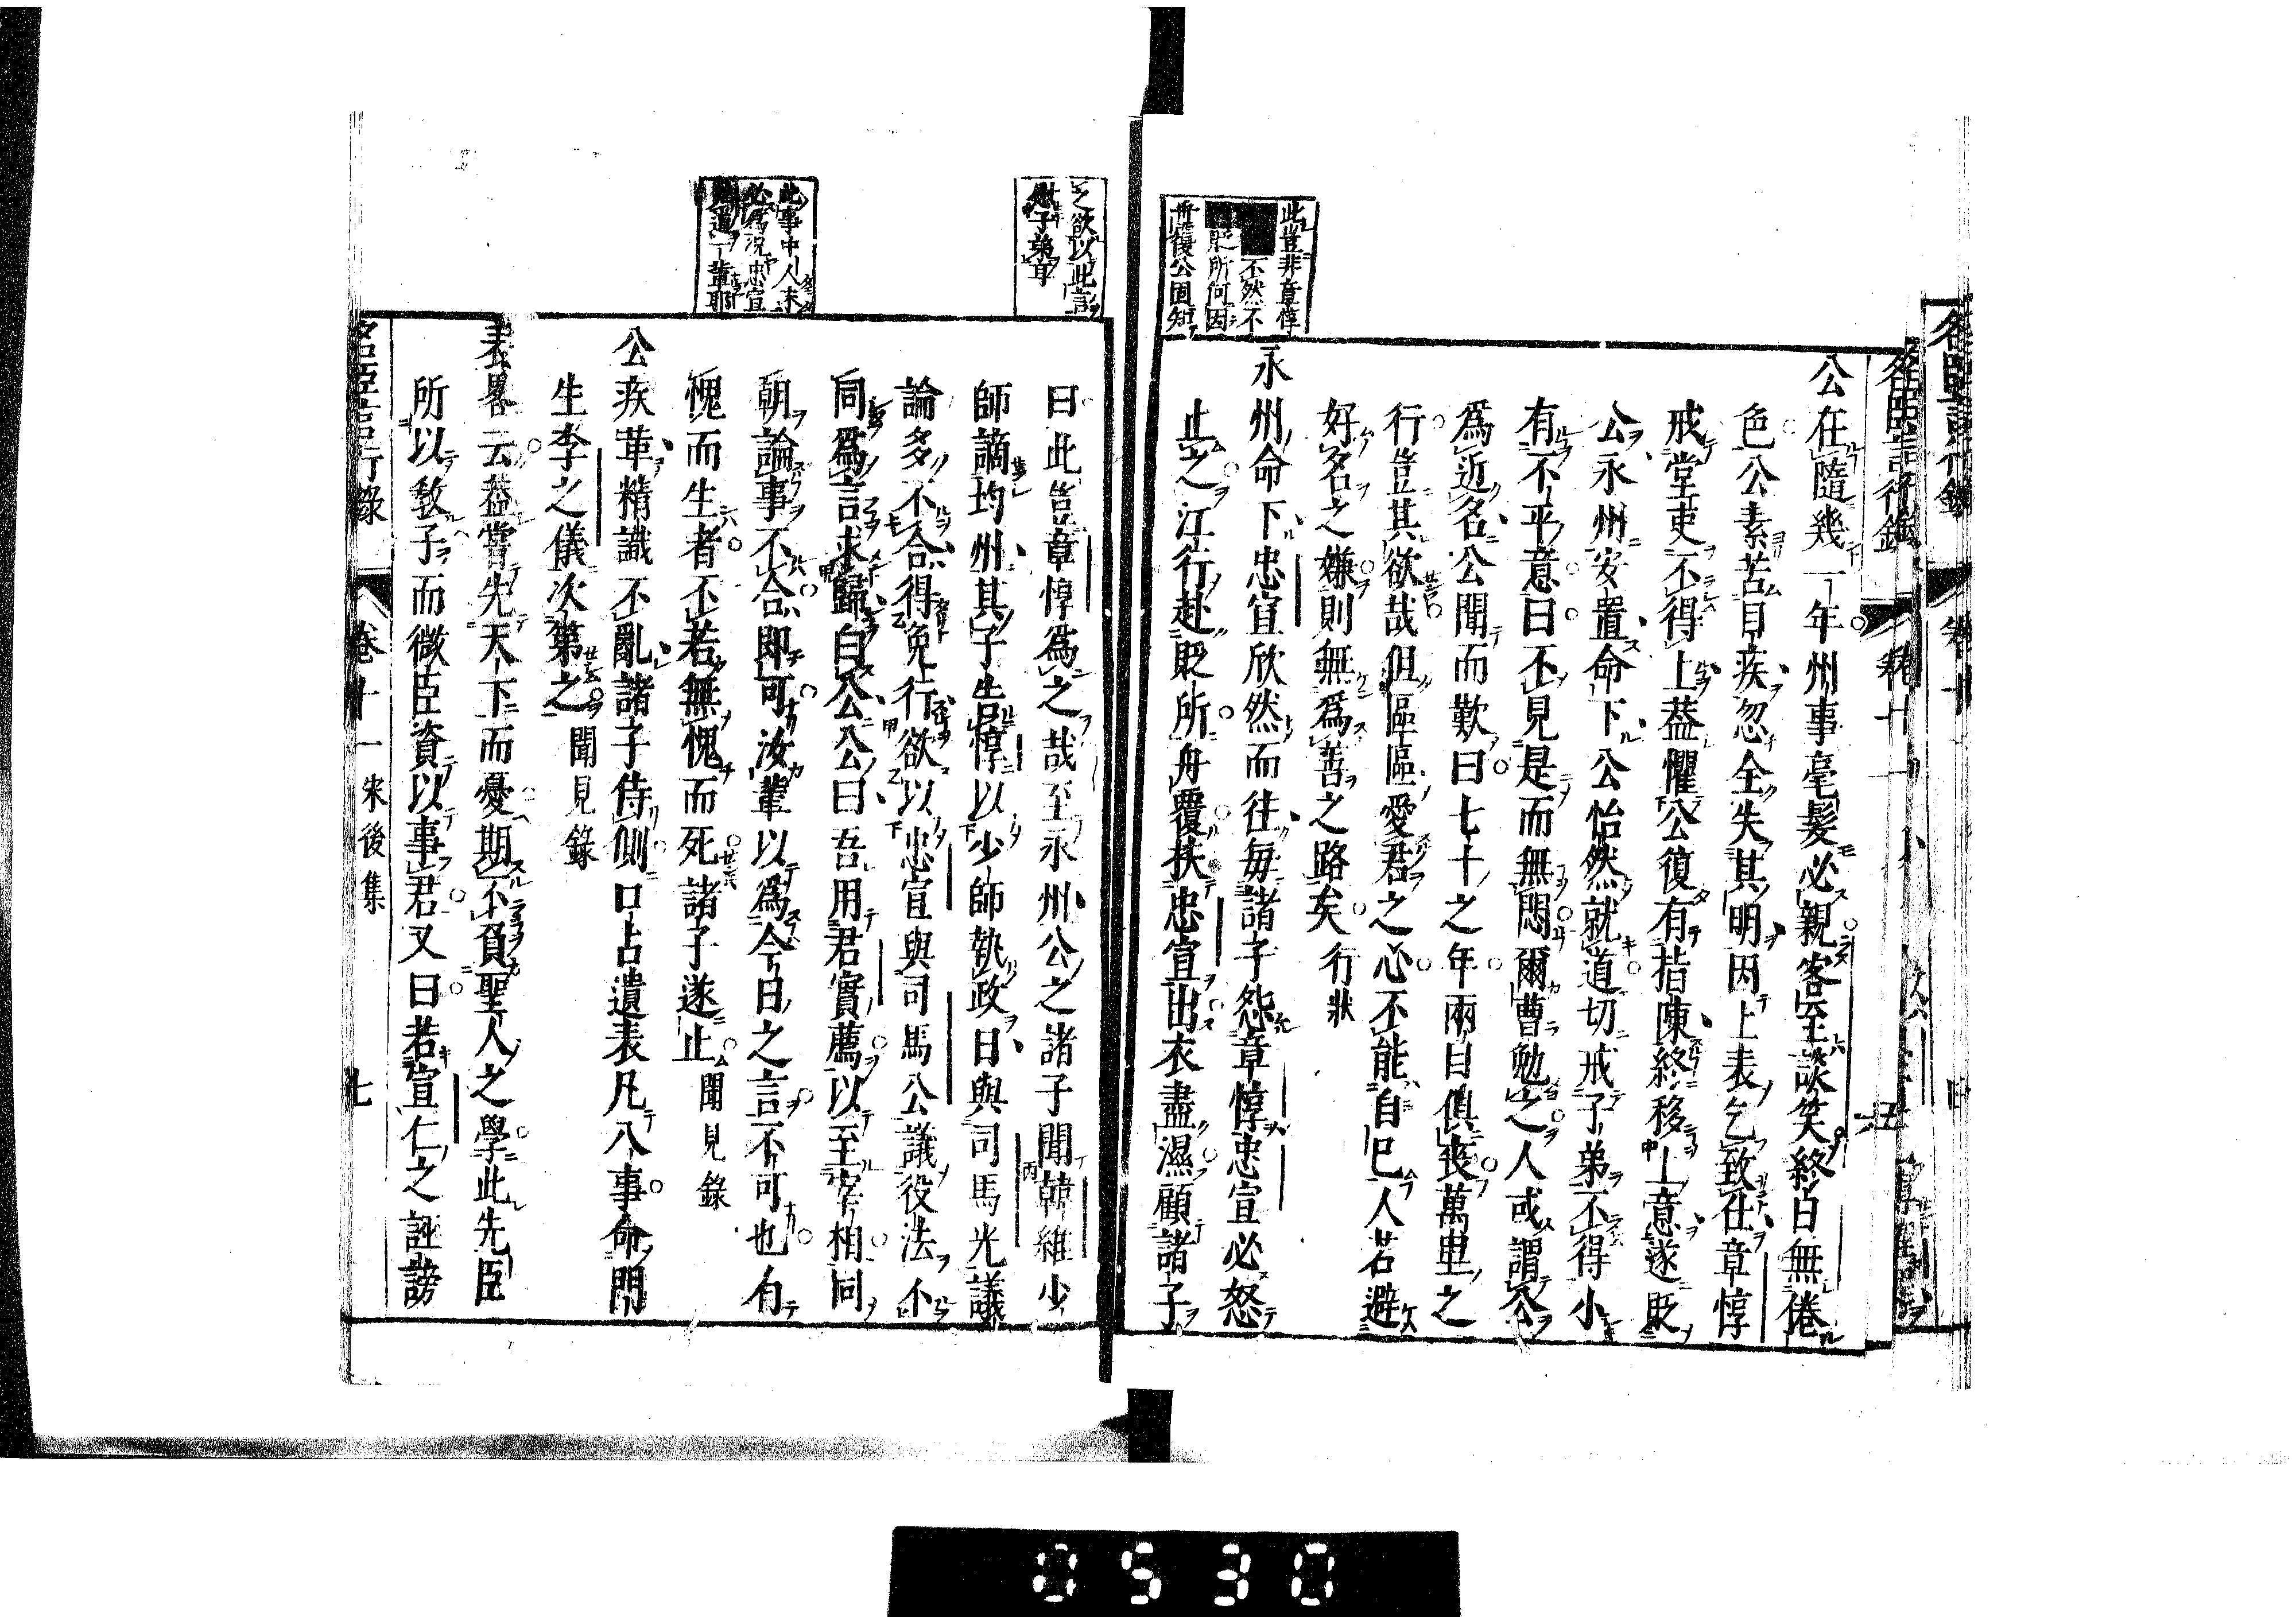 公在隨幾一年州事毫髮必親客至談笑終日無倦
色公素苦目疾忽全失其明因上表乞致仕章惇
戒堂吏不得上葢懼公復有指陳終移上意遂貶
公永州安置命下公怡然就道切戒子弟不得小
有不平意曰不見是而無悶爾曹勉之人或謂公
爲近名公聞而歎曰七十之年兩目俱喪萬里之
行豈其欲哉但區區愛君之心不能自已人若避
好名之嫌則無爲善之路矣 行狀
永州命下忠宣欣然而往每諸子怨章惇忠宣必怒
止之江行赴貶所舟覆扶忠宣出衣盡濕顧諸子
此豈非章惇
不然不
貶所何因
再復公固知
曰此豈章惇爲之哉至永州公之諸子聞韓維少
師謫均州其子告惇以少師執政日與司馬光議
論多不合得免行欲以忠宣與司馬公議役法不
同爲言求歸白公公曰吾用君實薦以至宰相同
朝論事不合即可汝輩以爲今日之言不可也有
愧而生者不若無愧而死諸子遂止 聞見錄
公疾革精識不亂諸子侍側口占遺表凡八事命門
生李之儀次第之 聞見錄
表畧云葢嘗先天下而憂期不負聖人之學此先臣
所以敎子而微臣資以事君又曰若宣仁之誣謗
之欲以此言
慰子弟章
此事中人未
必爲況忠宣
還一輩耶
名臣言行錄 卷十一 宋後集 七
0530